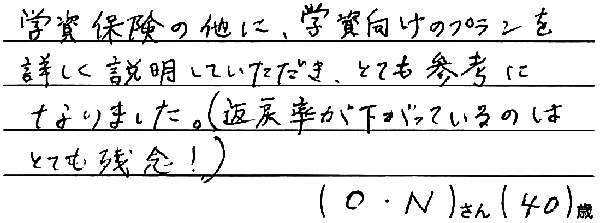 学資保険の他に、学資向けのプランを
詳しく説明していただき、とても参考に
なりました。(返戻率が下がっているのは
とても残念!)
(O・N)さん(40)歳